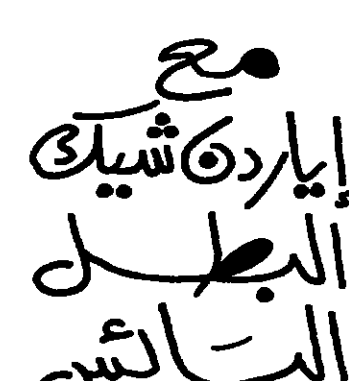 مع
إياردن شيك
البطل
البائس